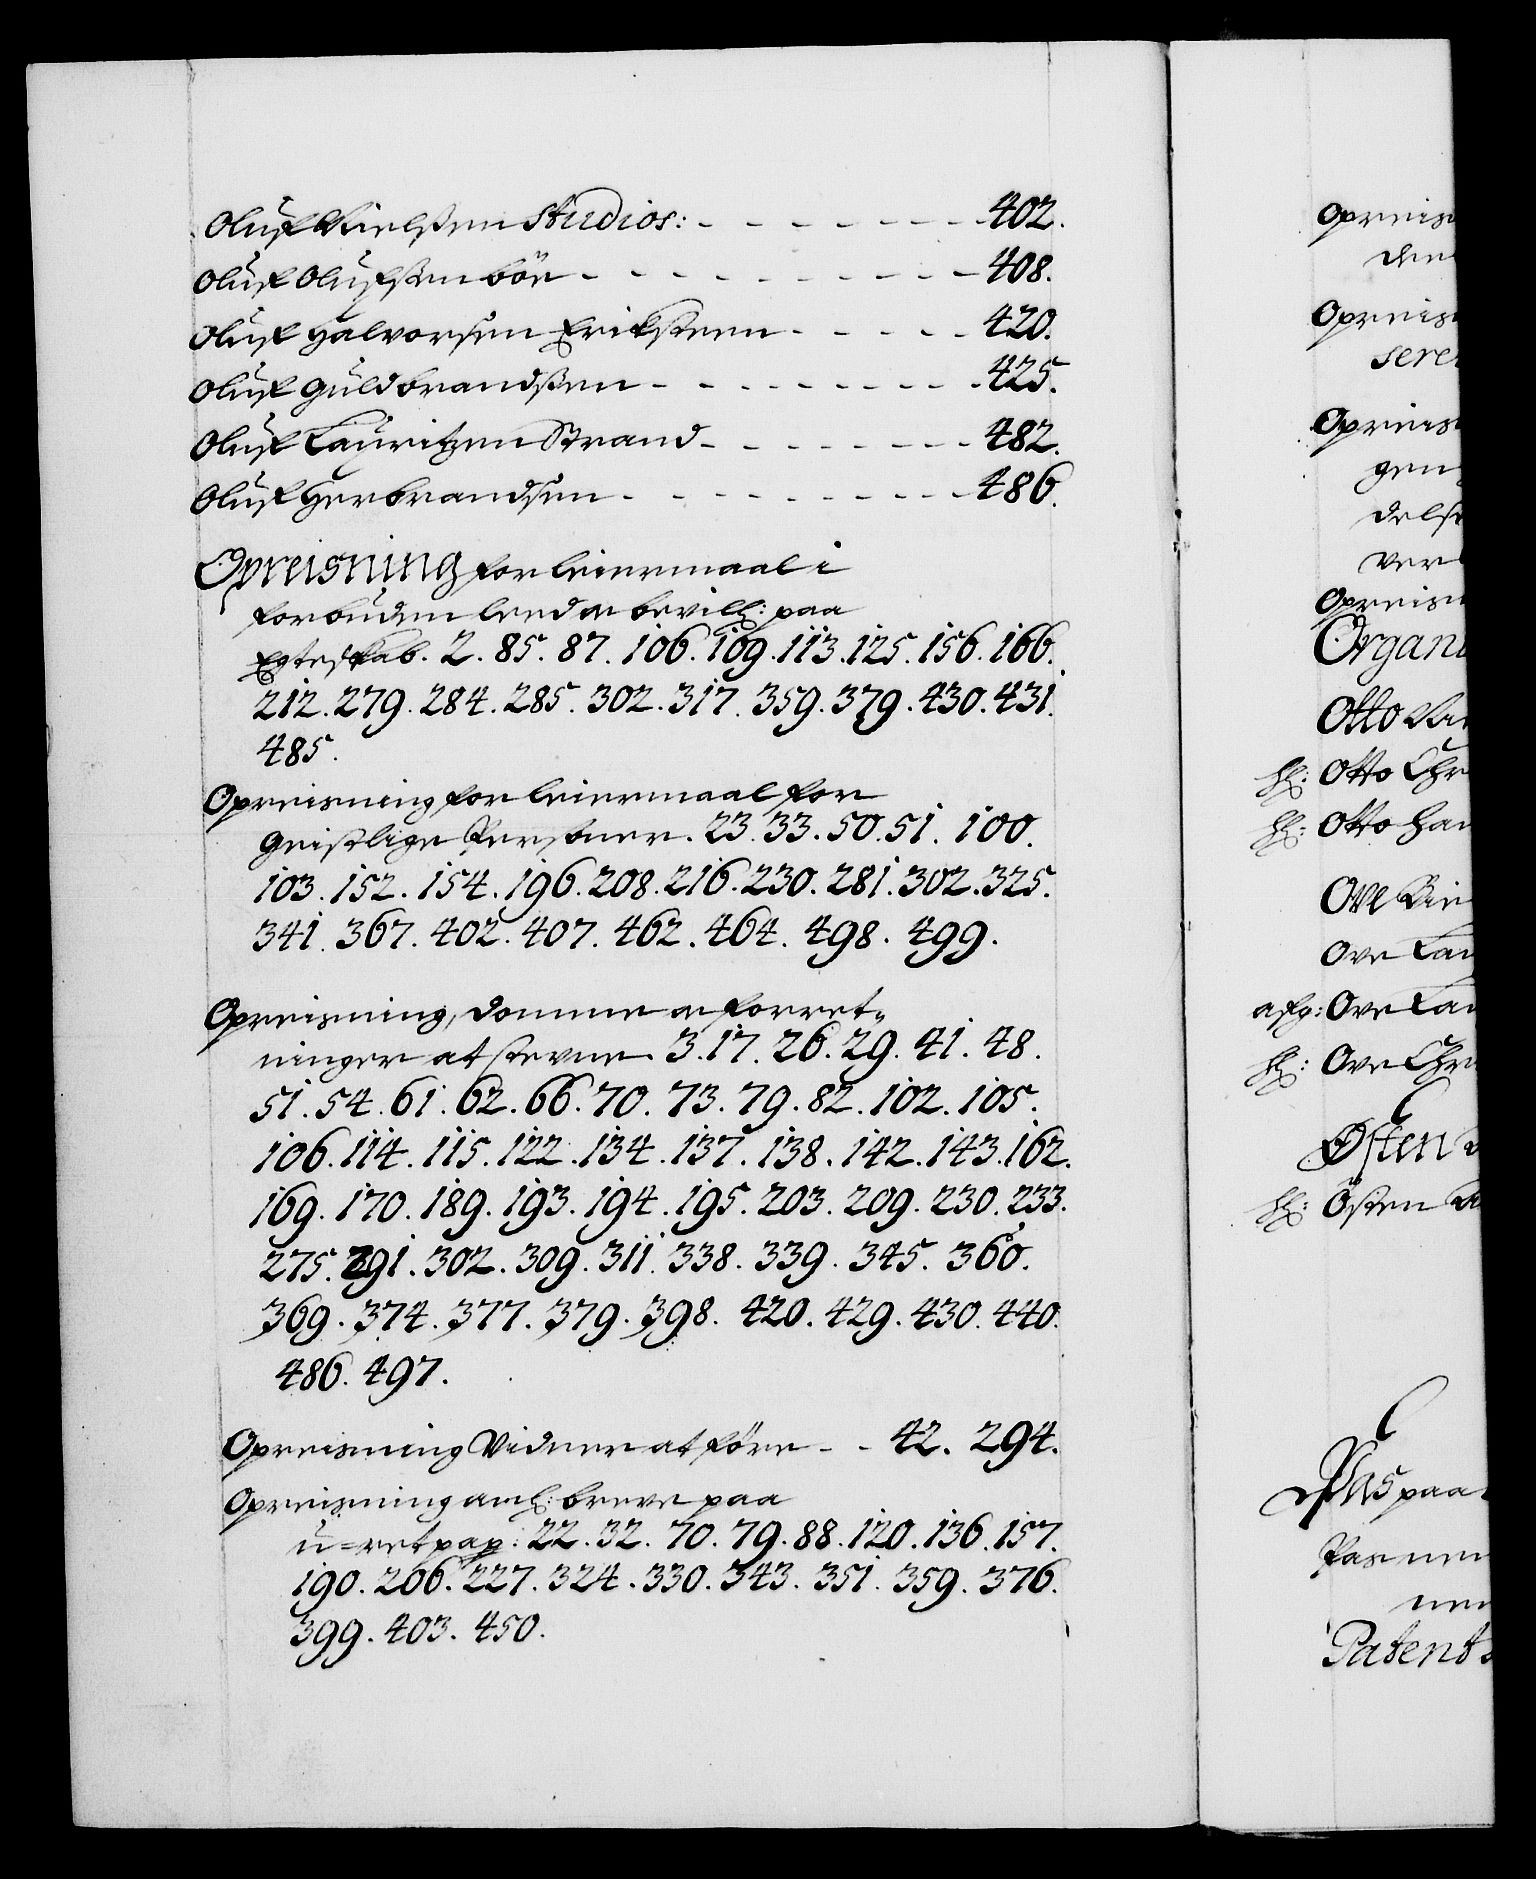 Oluf Nielsßen Studios: - - - - - - - 402.
Oluf Olufsßen böe - - - - - - - - - 408.
Oluf Halvorsen Eriksteen - - - - - 420.
Oluf Guldbrandsßen - - - - - - - - 425.
Oluf Lauritzen Strand - - - - - - - 482.
Oluf Herbrandsen - - - - - - - - - 486.
Opreisning for leiermaal i
forbuden leed a bevill: paa
Egteskab. 2. 85. 87. 106. 109. 113. 125. 156. 166.
212. 279. 284. 285. 302. 317. 359. 379. 430. 431.
485.
Opreisning for leiermaal for
geistlige Personer. 23. 33. 50. 51. 100.
103. 152. 154. 196. 208. 216. 230. 281. 302. 325.
341. 367. 402. 407. 462. 464. 498. 499.
Opreisning, domme a forret„
ninger at stevne. 3. 17. 26. 29. 41. 48.
51. 54. 61. 62. 66. 70. 73. 79. 82. 102. 105.
106. 114. 115. 122. 134. 137. 138. 142. 143. 162.
169. 170. 189. 193. 194. 195. 203. 209. 230. 233.
275. 291. 302. 309. 311. 338. 339. 345. 360.
369. 374. 377. 379. 398. 420. 429. 430. 440.
486. 497.
Opreisning Vidner at före - - 42. 294.
Opreisning anl: breve paa
u=ret pap: 22. 32. 70. 79. 88. 120. 136. 157.
190. 206. 227. 324. 330. 343. 351. 359. 376.
399. 403. 450.
Opreis
den
Opreis
serer
Opreis
gen
dels
ver
Opreis
Organ
Otto
Otto Chr
Otto Han
Ove
Ove Lau
afg: Ove Lau
Ove Chr
Østen
Østen
Pas paa
Pas
Patent